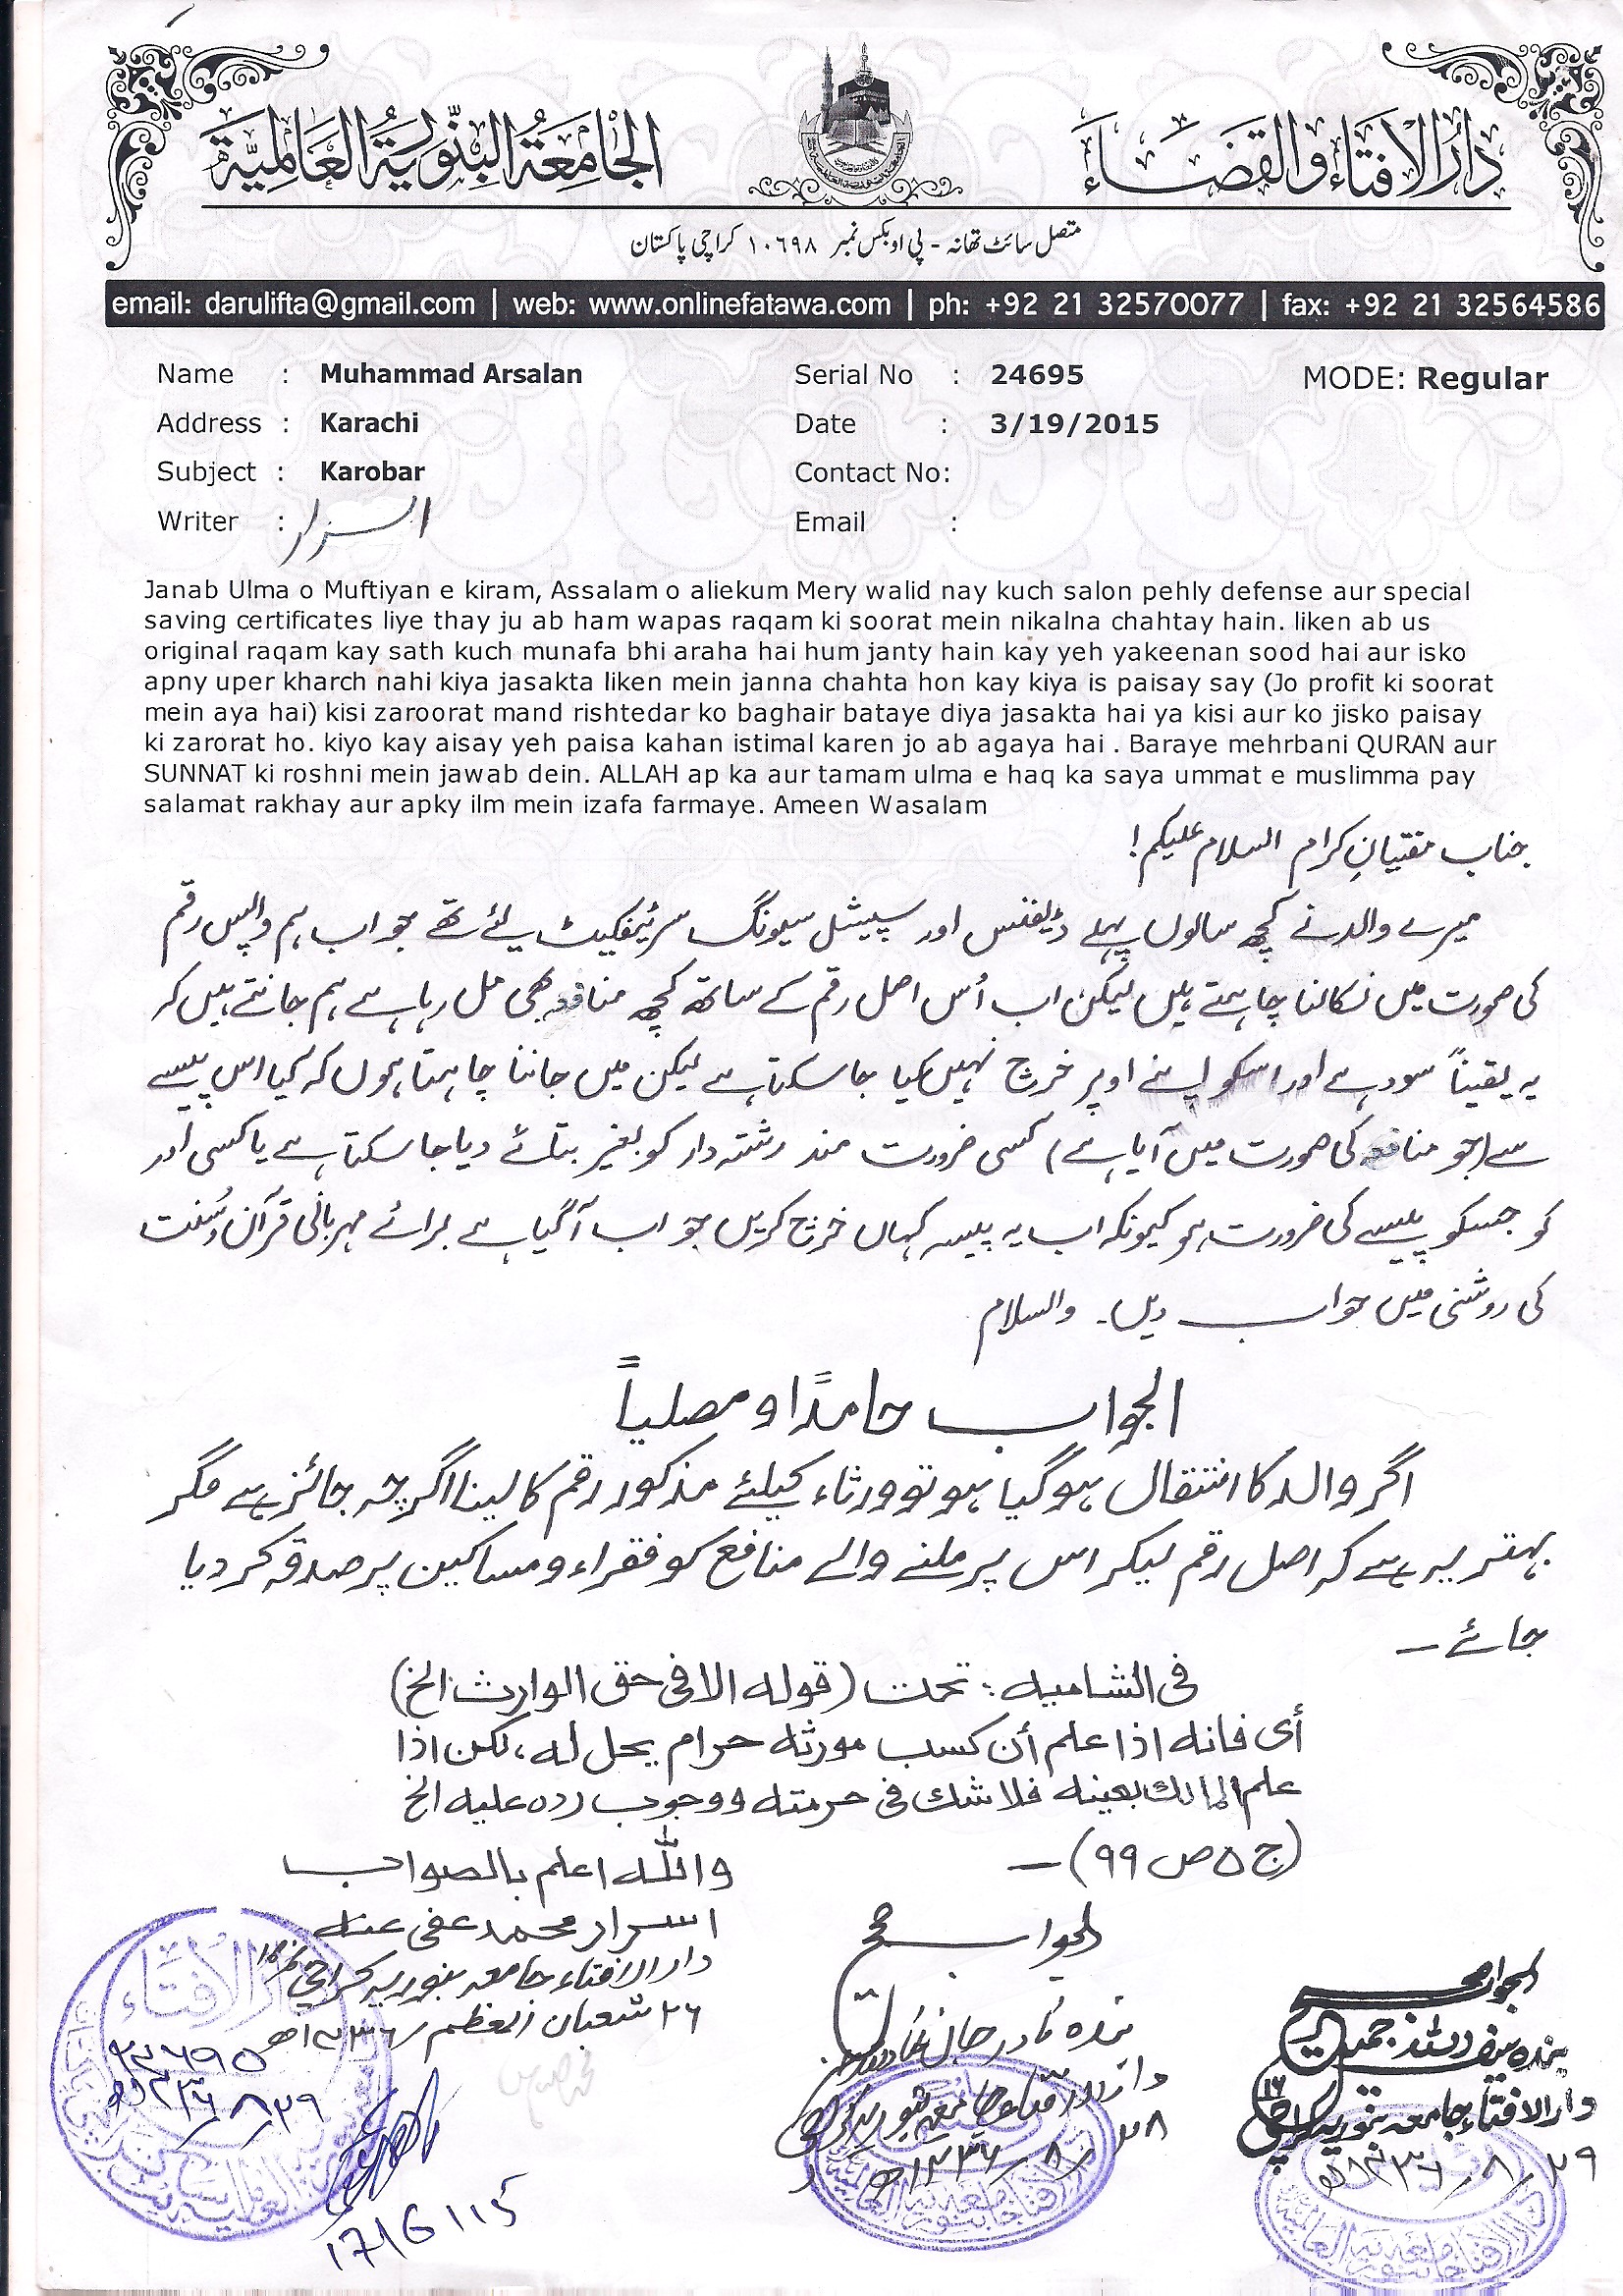 دَارُ الاِفتَاء وَالقَضَاء
الجَامِعَةُ البِنّورِيَةُ العَالَمِيَّة
متصل سائٹ تھانہ - پی او بکس نمبر ۱۰۶۹۸ کراچی پاکستان
email: darulifta@gmail.com | web: www.onlinefatawa.com | ph: +92 21 32570077 | fax: +92 21 32564586
Name : Muhammad Arsalan Serial No : 24695 MODE: Regular
Address : Karachi Date : 3/19/2015
Subject : Karobar Contact No:
Writer : اسرار Email :
Janab Ulma o Muftiyan e kiram, Assalam o aliekum Mery walid nay kuch salon pehly defense aur special
saving certificates liye thay ju ab ham wapas raqam ki soorat mein nikalna chahtay hain. liken ab us
original raqam kay sath kuch munafa bhi araha hai hum janty hain kay yeh yakeenan sood hai aur isko
apny uper kharch nahi kiya jasakta liken mein janna chahta hon kay kiya is paisay say (Jo profit ki soorat
mein aya hai) kisi zaroorat mand rishtedar ko baghair bataye diya jasakta hai ya kisi aur ko jisko paisay
ki zarorat ho. kiyo kay aisay yeh paisa kahan istimal karen jo ab agaya hai . Baraye mehrbani QURAN aur
SUNNAT ki roshni mein jawab dein. ALLAH ap ka aur tamam ulma e haq ka saya ummat e muslimma pay
salamat rakhay aur apky ilm mein izafa farmaye. Ameen Wasalam
جناب مفتیانِ کرام السلام علیکم!
میرے والد نے کچھ سالوں پہلے ڈیفنس اور سپیشل سیونگ سرٹیفکیٹ لئے تھے جو اب ہم واپس رقم
کی صورت میں نکالنا چاہتے ہیں لیکن اب اُس اصل رقم کے ساتھ کچھ منافع بھی مل رہا ہے ہم جانتے ہیں کہ
یہ یقیناً سود ہے اور اسکو اپنے اوپر خرچ نہیں کیا جا سکتا ہے لیکن میں جاننا چاہتا ہوں کہ کیا اس پیسے
سے (جو منافع کی صورت میں آیا ہے) کسی ضرورت مند رشتہ دار کو بغیر بتائے دیا جا سکتا ہے یا کسی اور
کو جسکو پیسے کی ضرورت ہو کیونکہ اب یہ پیسہ کہاں خرچ کریں جو اب آگیا ہے برائے مہربانی قرآن و سُنت
کی روشنی میں جواب دیں۔ والسلام
الجواب حامدًا و مصلیاً
اگر والد کا انتقال ہوگیا ہو تو ورثاء کیلئے مذکور رقم کا لینا اگرچہ جائز ہے مگر
بہتر یہ ہے کہ اصل رقم لیکر اس پر ملنے والے منافع کو فقراء و مساکین پر صدقہ کر دیا
جائے ۔
فی الشامیہ : تحت (قولہ الا فی حق الوارث الخ)
أی فانہ اذا علم أن کسب مورثہ حرام یحل لہ، لکن اذا
علم المالک بعینہ فلا شک فی حرمتہ ووجوب ردہ علیہ الخ
(ج ۵ ص ۹۹) ۔
واللہ اعلم بالصواب
اسرار محمد عفی عنہ
دار الافتاء جامعہ بنوریہ کراچی نمبر ۱۶
۲۶ شعبان المعظم ۱۴۳۶ھ
۲۴۶۹۵
۲۹/۸/۱۴۳۶ھ
17/6/15
الجواب صحیح
بندہ نادر جان
دار الافتاء جامعہ بنوریہ کراچی
۲۸/۸/۱۴۳۶ھ
الجواب صحیح
بندہ سیف اللہ جمیل
دار الافتاء جامعہ بنوریہ کراچی ۱۶
۲۹/۸/۱۴۳۶ھ